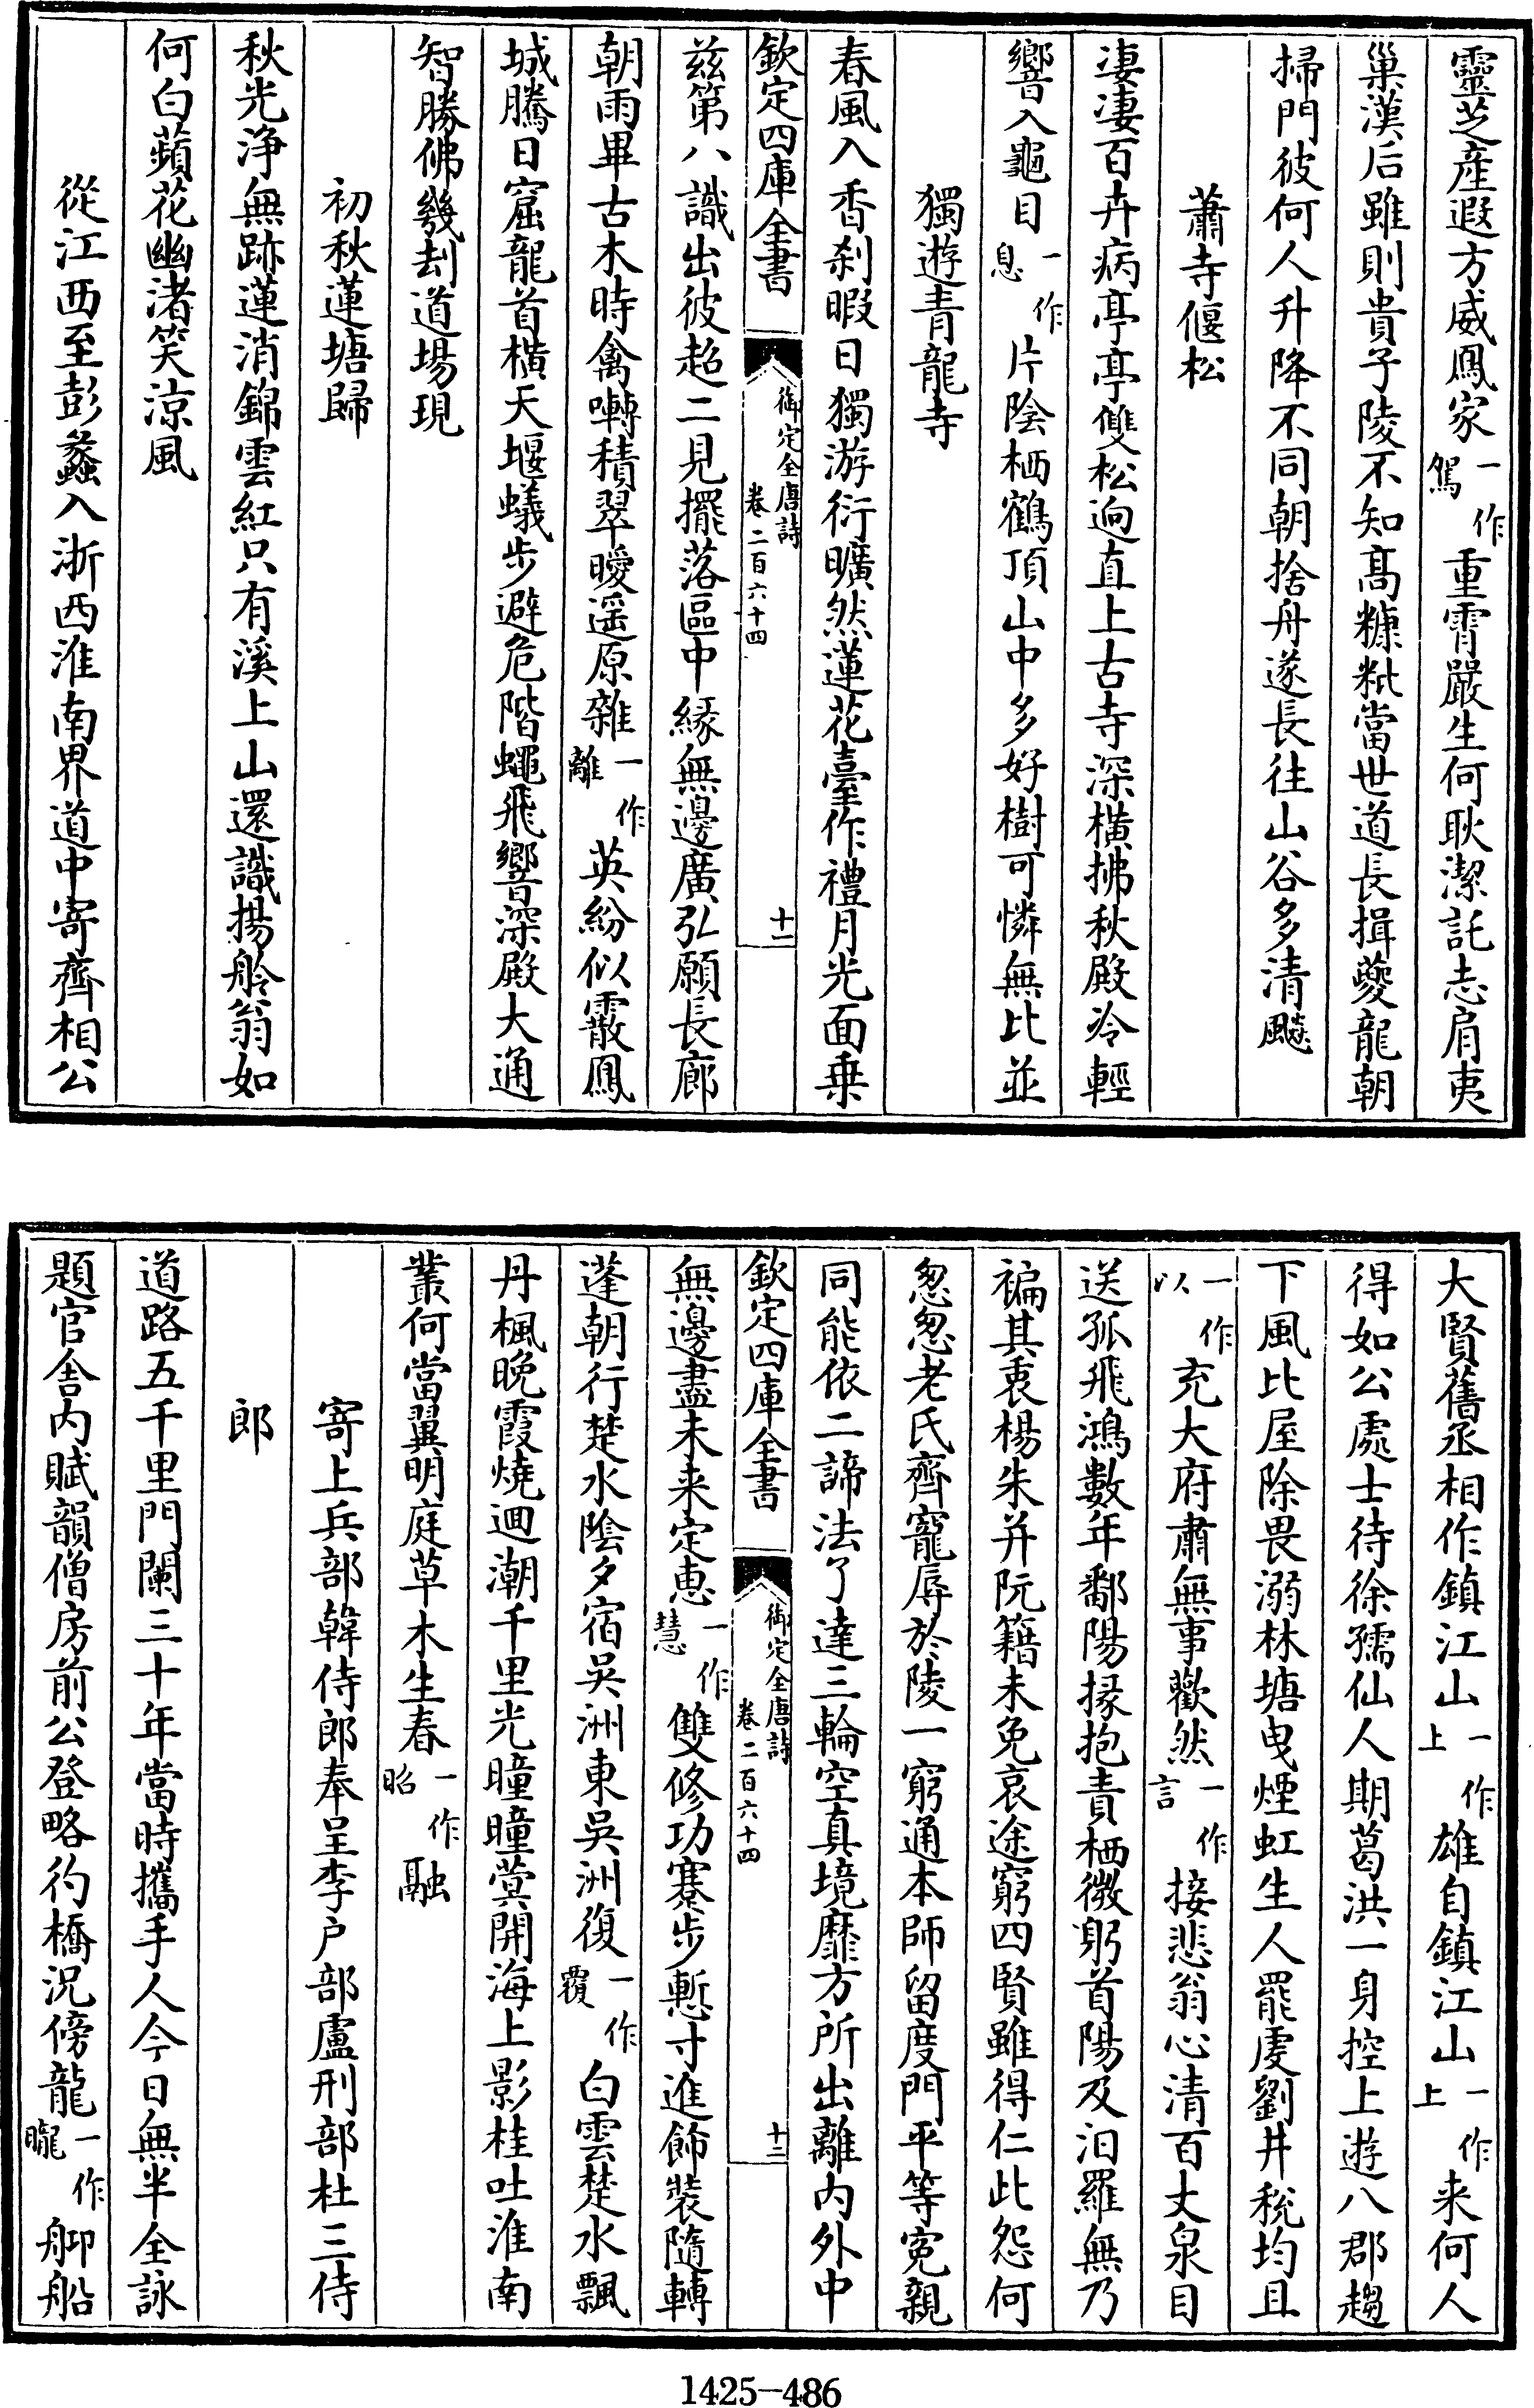 靈芝產遐方威鳳家一作駕重霄嚴生何耿潔託志肩夷
巢漢后雖則貴子陵不知髙糠粃當世道長揖夔龍朝
掃門彼何人升降不同朝捨舟遂長往山谷多清飈
蕭寺偃松
凄凄百卉病亭亭雙松逈直上古寺深橫拂秋殿冷輕
響入龜目一作息片陰栖鶴頂山中多好樹可憐無比並
獨遊青龍寺
春風入香刹暇日獨游衍曠然蓮花臺作禮月光面乗
欽定四庫全書
御定全唐詩
卷二百六十四
十一
兹第八識出彼超二見擺落區中緣無邊廣弘願長廊
朝雨畢古木時禽囀積翠曖遥原雜一作離英紛似霰鳳
城騰日窟龍首橫天堰蟻步避危階蠅飛響深殿大通
智勝佛幾刦道場現
初秋蓮塘歸
秋光浄無跡蓮消錦雲紅只有溪上山還識揚舲翁如
何白蘋花幽渚笑涼風
從江西至彭蠡入浙西淮南界道中寄齊相公
大賢舊丞相作鎮江山一作上雄自鎮江山一作上来何人
得如公處士待徐孺仙人期葛洪一身控上遊八郡趨
下風比屋除畏溺林塘曳煙虹生人罷虔劉井税均且
一作以充大府肅無事歡然一作言接悲翁心清百丈泉目
送孤飛鴻數年鄱陽掾抱責栖微躬首陽及汨羅無乃
褊其衷楊朱并阮籍未免哀途窮四賢雖得仁此怨何
怱怱老氏齊寵辱於陵一窮通本師留度門平等寃親
同能依二諦法了達三輪空真境靡方所出離内外中
欽定四庫全書
御定全唐詩
卷二百六十四
十二
無邊盡未来定恵一作慧雙修功蹇步慙寸進飾裝隨轉
蓬朝行楚水陰夕宿吳洲東吳洲復一作覆白雲楚水飄
丹楓晚霞燒迴潮千里光瞳瞳蓂開海上影桂吐淮南
叢何當翼明庭草木生春一作昭融
寄上兵部韓侍郎奉呈李户部盧刑部杜三侍
郎
道路五千里門闌三十年當時攜手人今日無半全詠
題官舍内賦韻僧房前公登略彴橋況傍龍一作矓䑦船
1425-486